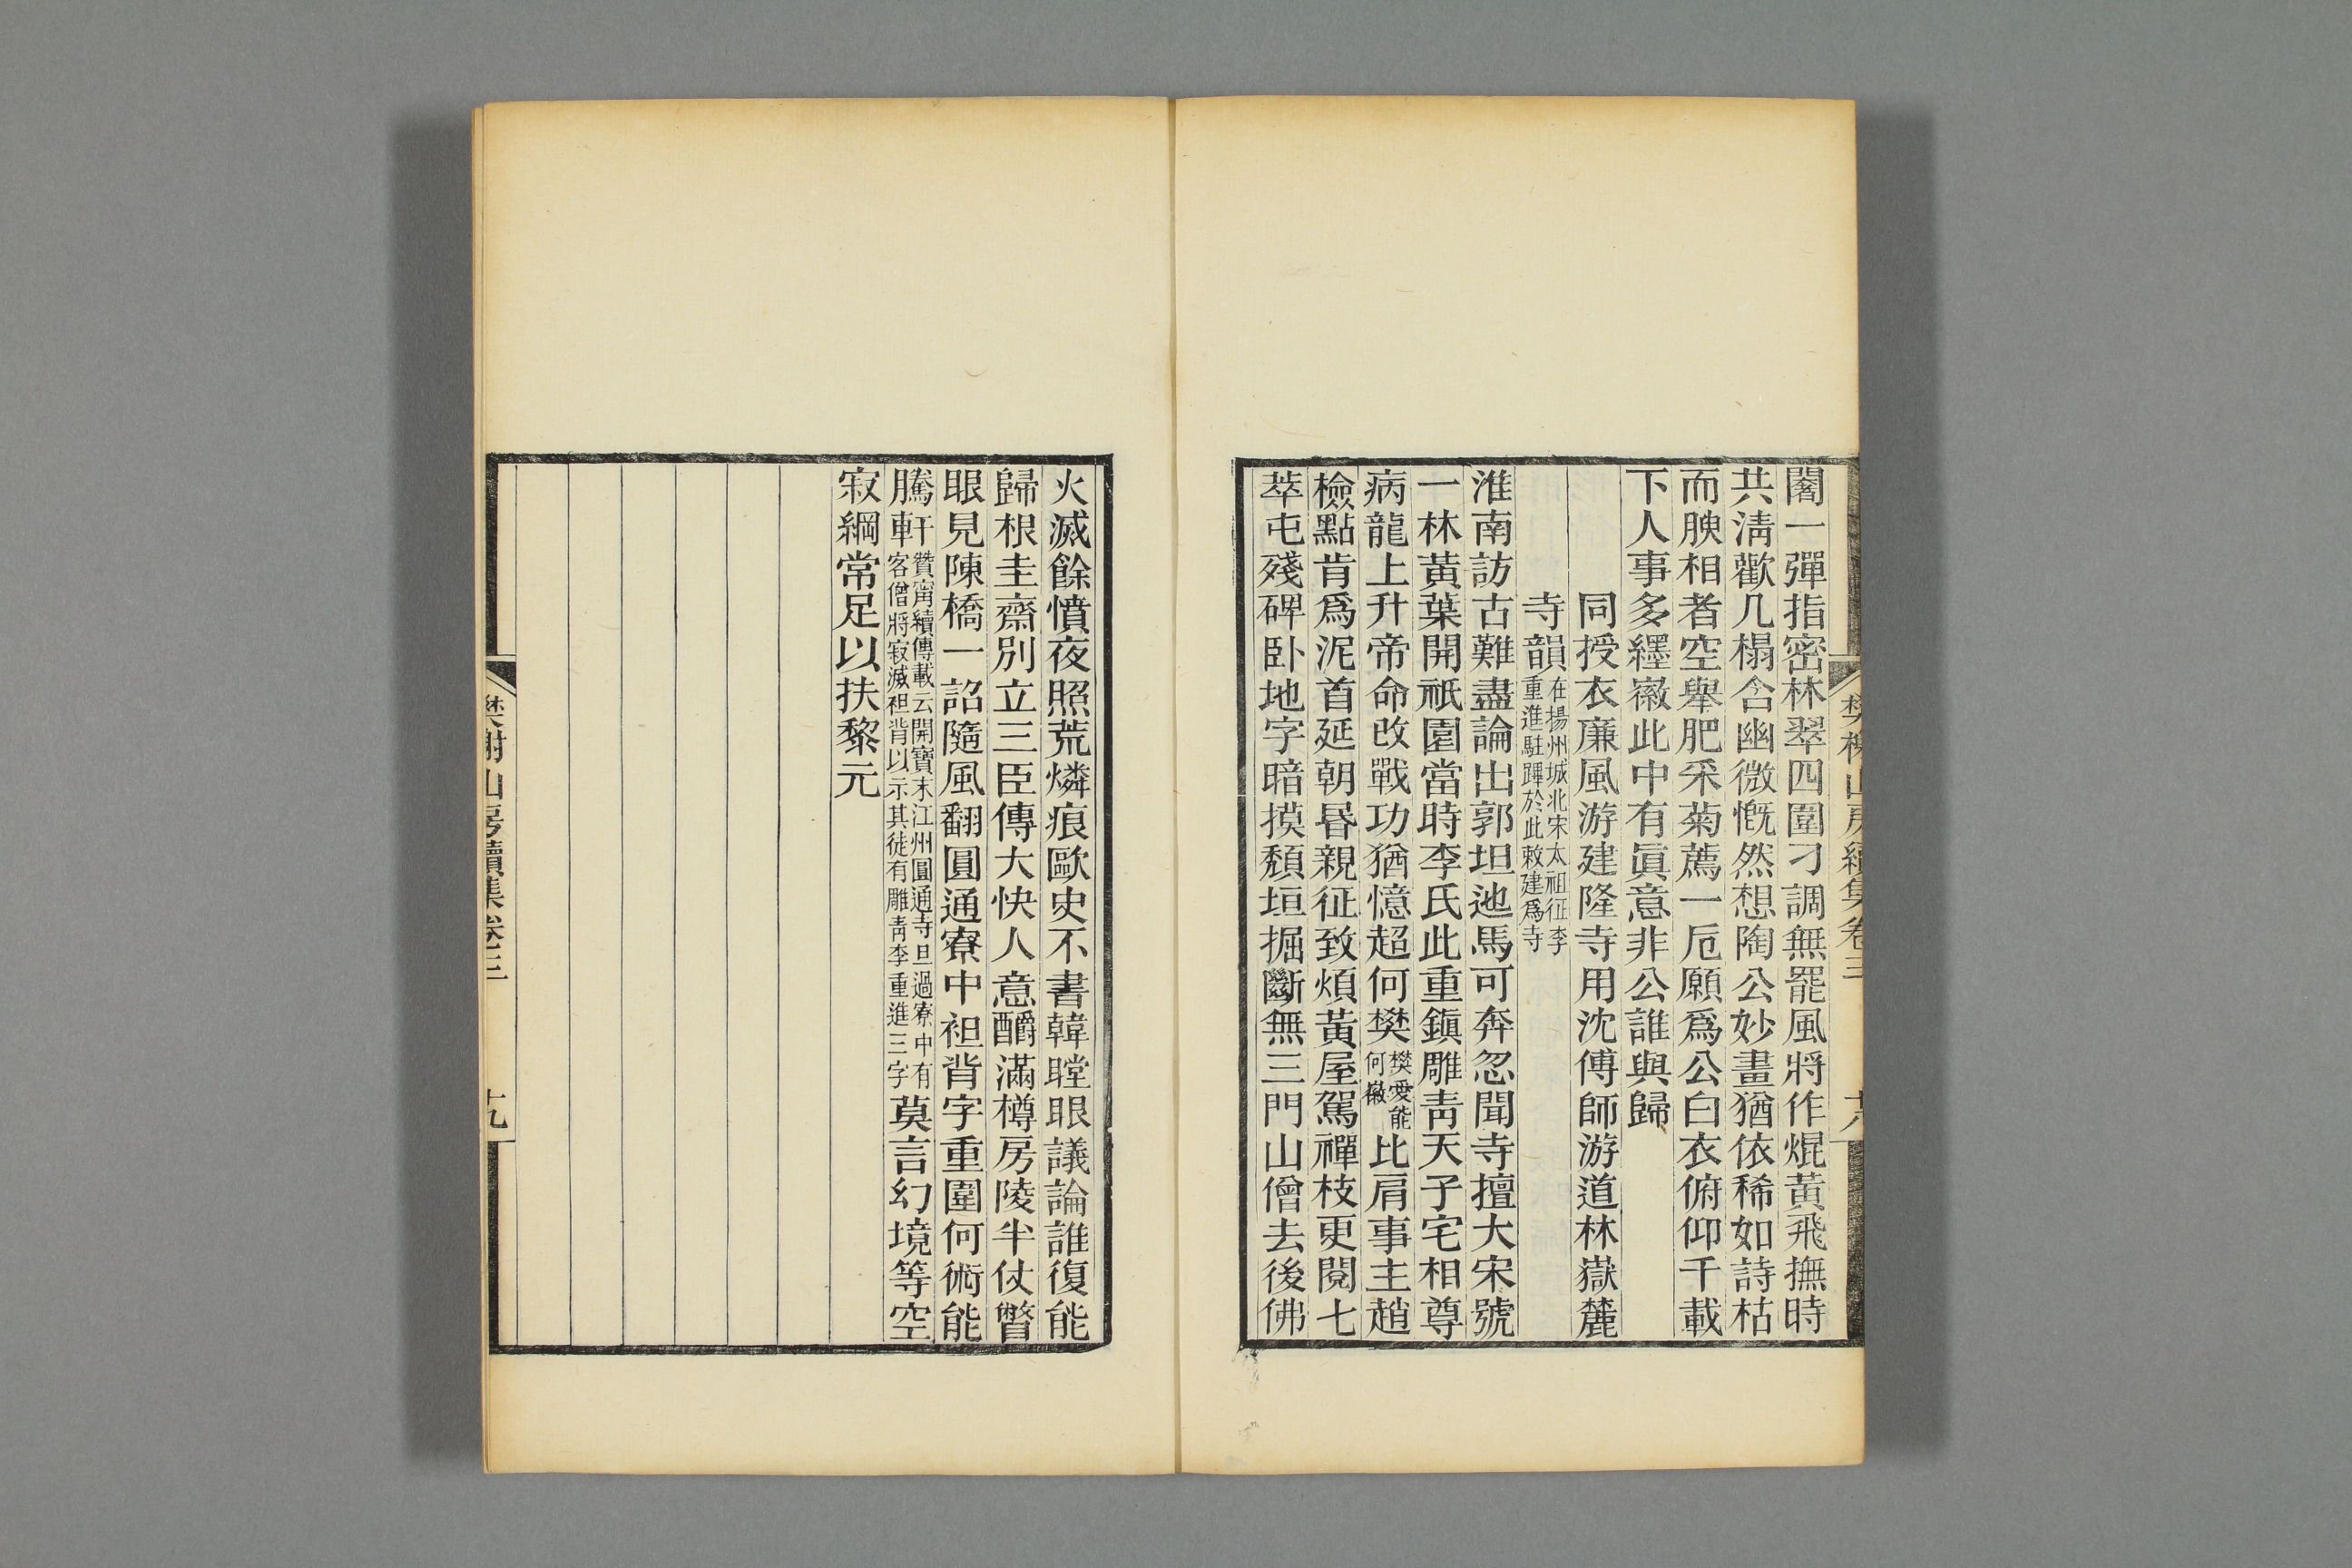 闍一彈指密林翠四圍刁調無罷風將作焜黃飛撫時
共淸歡几榻含幽微慨然想陶公妙畫猶依稀如詩枯
而腴相者空舉肥釆菊薦一卮願爲公白衣俯仰千載
下人事多纆徽此中有眞意非公誰與歸
同授衣廉風游建隆寺用沈傅師游道林嶽麓
寺韻在揚州城北宋太祖征李重進駐蹕於此敕建爲寺
淮南訪古難盡論出郭坦迤馬可奔忽聞寺擅大宋號
一林黃葉開祇園當時李氏此重鎭雕靑天子宅相尊
病龍上升帝命改戰功猶憶超何樊樊愛能何徽比肩事主趙
檢點肯爲泥首延朝昏親征致煩黃屋駕禪枝更閱七
萃屯殘碑卧地字暗摸頽垣掘斷無三門山僧去後佛
火滅餘憤夜照荒燐痕歐史不書韓瞠眼議論誰復能
歸根圭齋別立三臣傳大快人意釂滿樽房陵半仗瞥
眼見陳橋一詔隨風翻圓通寮中袒背字重圍何術能
騰軒贊甯續傳載云開寶末江州圓通寺旦過寮中有客僧將寂滅袒背以示其徒有雕靑李重進三字莫言幻境等空
寂綱常足以扶黎元
樊榭山房續集卷三
十九